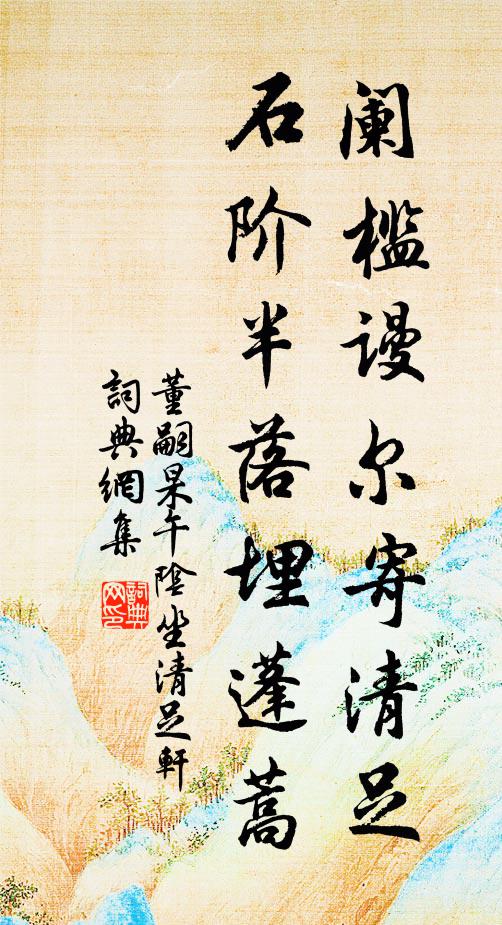 阑槛谩尔寄清足
石阶半落埋蓬蒿
董嗣杲午陰坐清足軒
詞典網集
詞典
网印